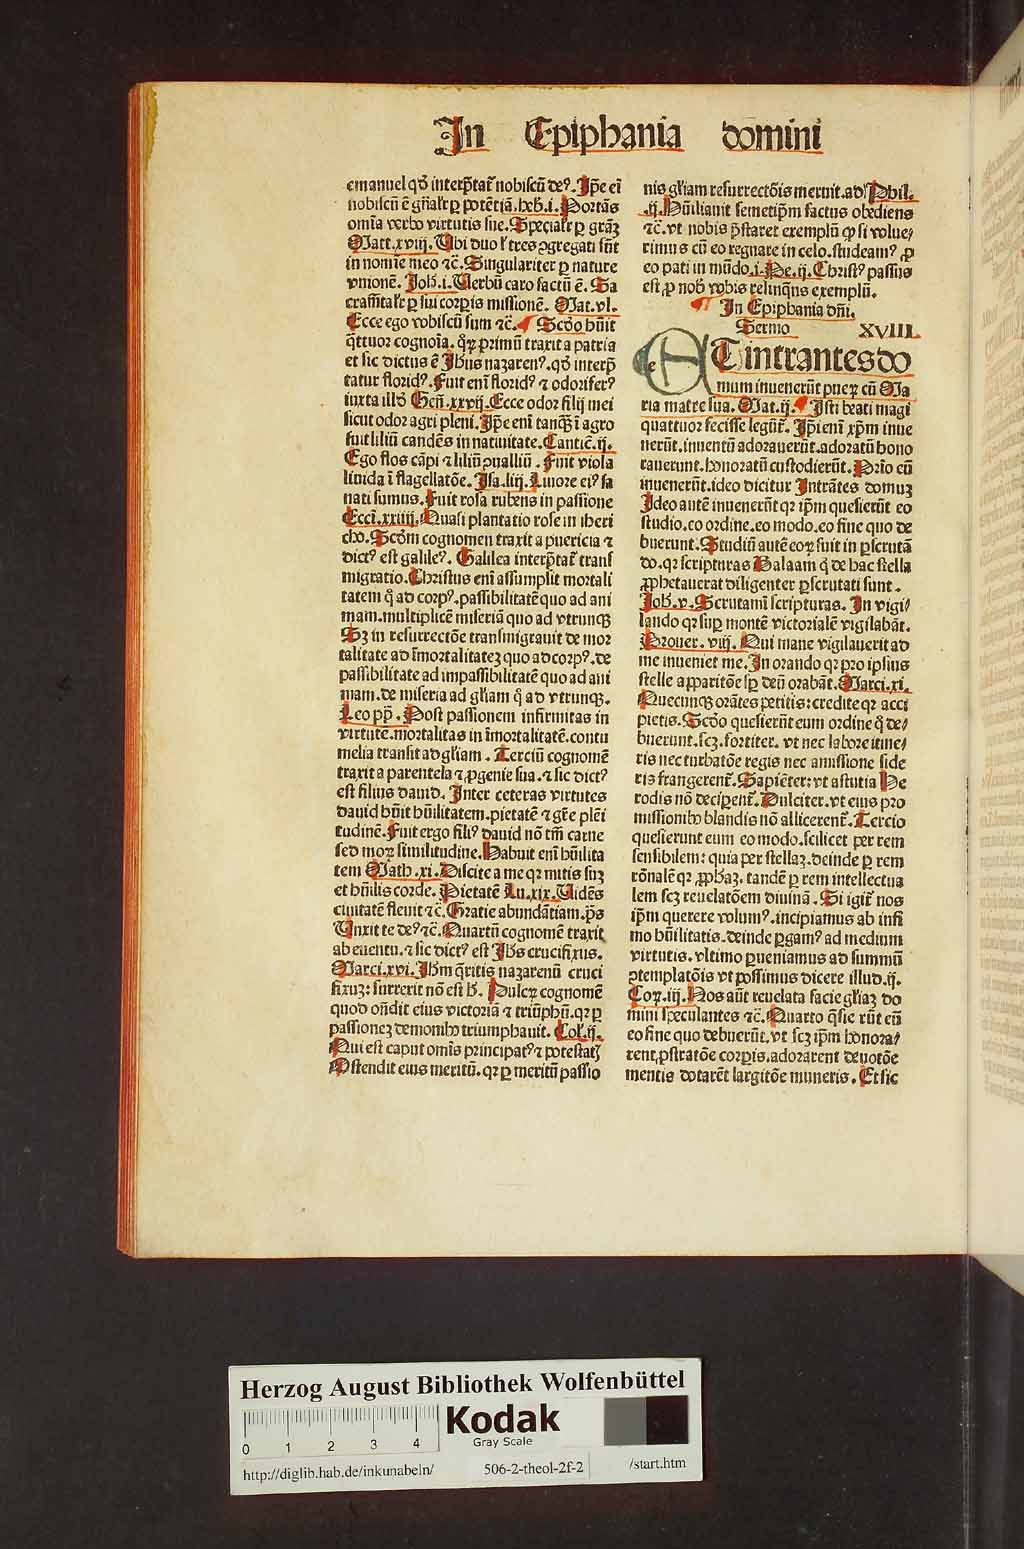 In Epiphania domini
emanuel qď interp̄tat᷑ nobiscū deꝰ. Ip̄e em̄
nobiscū ē gn̄aliť ꝑ potētiā. heb̄.i. Portās
om̄ia verbo virtutis sue. Specialiť ꝑ grāꝫ
Matt.xviij. Ubi duo ł tres ꝯgregati sūt
in noīe meo ⁊c̄. Singulariter ꝑ nature
vnionē. Joh̄.i. Verbū caro factū ē. Sa
cramītaliť ꝑ sui corꝑis missionē. Mat.vl.
Ecce ego vobiscū sum ⁊c̄. Scd̄o hūit
q̄ttuor cognoīa. qꝝ primū traxit a patria
et sic dictus ē Ihūs nazarenꝰ. qď interp̄
tatur floridꝰ. Fuit em̄ floridꝰ ⁊ odoriferꝰ
iuxta illď Geñ.xxvij. Ecce odor filij mei
sicut odor agri pleni. Ip̄e em̄ tanq̄ ī agro
fuit liliū candēs in natiuitate. Cantic̄.ij.
Ego flos cāpi ⁊ liliū ꝯualliū. Fuit viola
liuida ī flagellatōe. Isa.liij. Liuore eiꝰ sa
nati sumus. Fuit rosa rubens in passione
Ecci.xxiiij. Quasi plantatio rose in iheri
cho. Scďm cognomen traxit a puericia ⁊
dictꝰ est galileꝰ. Galilea interp̄tat᷑ trans
migratio. Christus em̄ assumpsit mortali
tatem q̊ ad corpꝰ. passibilitatē quo ad ani
mam. multiplicē miseriā quo ad vtrunqꝫ
Sꝫ in resurrectōe transmigrauit de mor
talitate ad īmortalitateꝫ quo ad corpꝰ. de
passibilitate ad impassibilitatē quo ad ani
mam. de miseria ad gl̄iam q̊ ad vtrunqꝫ.
Leo pp̄. Post passionem infirmitas in
virtutē. mortalitas in īmortalitatē. contu
melia transit ad gl̄iam. Terciū cognomē
traxit a parentela ⁊ ꝓgenie sua. ⁊ sic dictꝰ
est filius dauid. Inter ceteras virtutes
dauid hūit hūilitatem. pietatē ⁊ gr̄e plēi
tudinē. Fuit ergo filiꝰ dauid nō tm̄ carne
sed moꝝ similitudine. Habuit em̄ hūilita
tem Math.xi. Discite a me qꝛ mitis suꝫ
et hūilis corde. Pietatē Lu.xix. Vidēs
ciuitatē fleuit ⁊c̄. Gratie abundātiam. p̄s
Unxit te deꝰ ⁊c̄. Quartū cognomē traxit
ab euentu. ⁊ sic dictꝰ est Ihūs crucifixus.
Marci.xvi. Ihm̄ q̄ritis nazarenū cruci
fixuꝫ: surrexit nō est h̄. Pulcꝝ cognomē
quod oñdit eius victoriā ⁊ triūphū. qꝛ ꝑ
passioneꝫ demonibꝰ triumphauit. Col̄.ij.
Qui est caput om̄is principatꝰ ⁊ potestatꝫ
Ostendit eius meritū. qꝛ ꝑ meritū passio
nis gl̄iam resurrectōis meruit. ad Phil.
.ij. Hūiliauit semetip̄m factus obediens
⁊c̄. vt nobis p̄staret exemplū ꝙ si volue/
rimus cū eo regnare in celo. studeamꝰ ꝓ
eo pati in mūdo. i.Pe.ij. Christꝰ passus
est ꝓ nob̄ vobis relinqn̄s exemplū.
In Epiphania dn̄i.
Sermo XVIII.
e
ET intrantes do
mum inuenerūt pueꝝ cū Ma
ria matre sua. Mat.ij. Isti beati magi
quattuor fecisse legūt᷑. Ip̄i em̄ xp̄m inue
nerūt. inuentū adorauerūt. adoratū hono
rauerunt. honoratū custodierūt. Prīo cū
inuenerūt. ideo dicitur Intrātes domuꝫ
Ideo autē inuenerūt qꝛ ip̄m quesierūt eo
studio. eo ordine. eo modo. eo fine quo de
buerunt. Studiū autē eoꝝ fuit in ꝑscrutā
do. qꝛ scripturas Balaam q̇ de hac stella
ꝓphetauerat diligenter ꝑscrutati sunt.
Joh̄.v. Scrutami scripturas. In vigi/
lando qꝛ suꝑ montē victorialē vigilabāt.
Prouer.viij. Qui mane vigilauerit ad
me inueniet me. In orando qꝛ pro ipsius
stelle apparitōe sꝑ deū orabāt. Marci.xi.
Quecunqꝫ orātes petitis: credite qꝛ acci
pietis. Scd̄o quesierūt eum ordine q̊ de/
buerunt. scꝫ. fortiter. vt nec labore itine/
ris nec turbatōe regis nec amissione side
ris frangerent᷑. Sapiēter: vt astutia He
rodis nō deciperent᷑. Dulciter. vt eius pro
missionibꝰ blandis nō allicerent᷑. Tercio
quesierunt eum eo modo. scilicet per rem
sensibilem: quia per stellaꝫ. deinde ꝑ rem
rōnalē qꝛ ꝓph̄aꝫ. tandē ꝑ rem intellectua
lem scꝫ reuelatōem diuinā. Si igit᷑ nos
ip̄m querere volumꝰ. incipiamus ab infi
mo hūilitatis. deinde ꝑgamꝰ ad medium
virtutis. vltimo ꝑueniamus ad summū
ꝯtemplatōis vt possimus dicere illud .ij.
Coꝝ.iij. Nos aūt reuelata facie gl̄iaꝫ do
mini speculantes ⁊c̄. Quarto q̄sie rūt eū
eo fine quo debuerūt. vt scꝫ ip̄m honora/
rent ꝓstratōe corꝑis. adorarent deuotōe
mentis dotarēt largitōe muneris. Et sic
Herzog August Bibliothek Wolfenbüttel
0 1 2 3 4
Kodak
Gray Scale
http://diglib.hab.de/inkunabeln/ 506-2-theol-2f-2 /start.htm